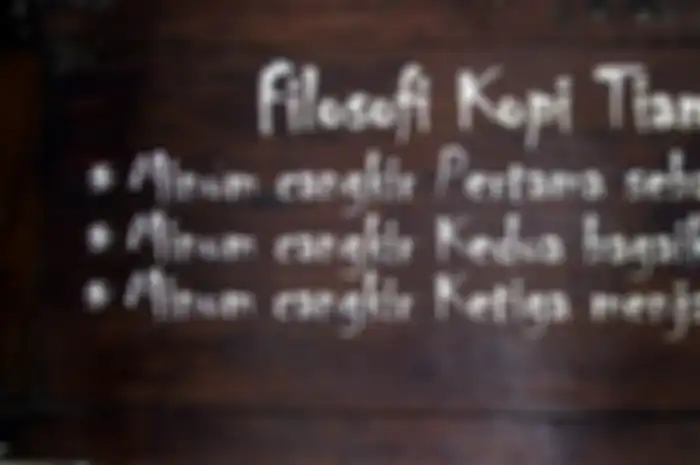 Filosofi Kopi
Minum cangkir Pertama
Minum cangkir Kedua
Minum cangkir Ketiga